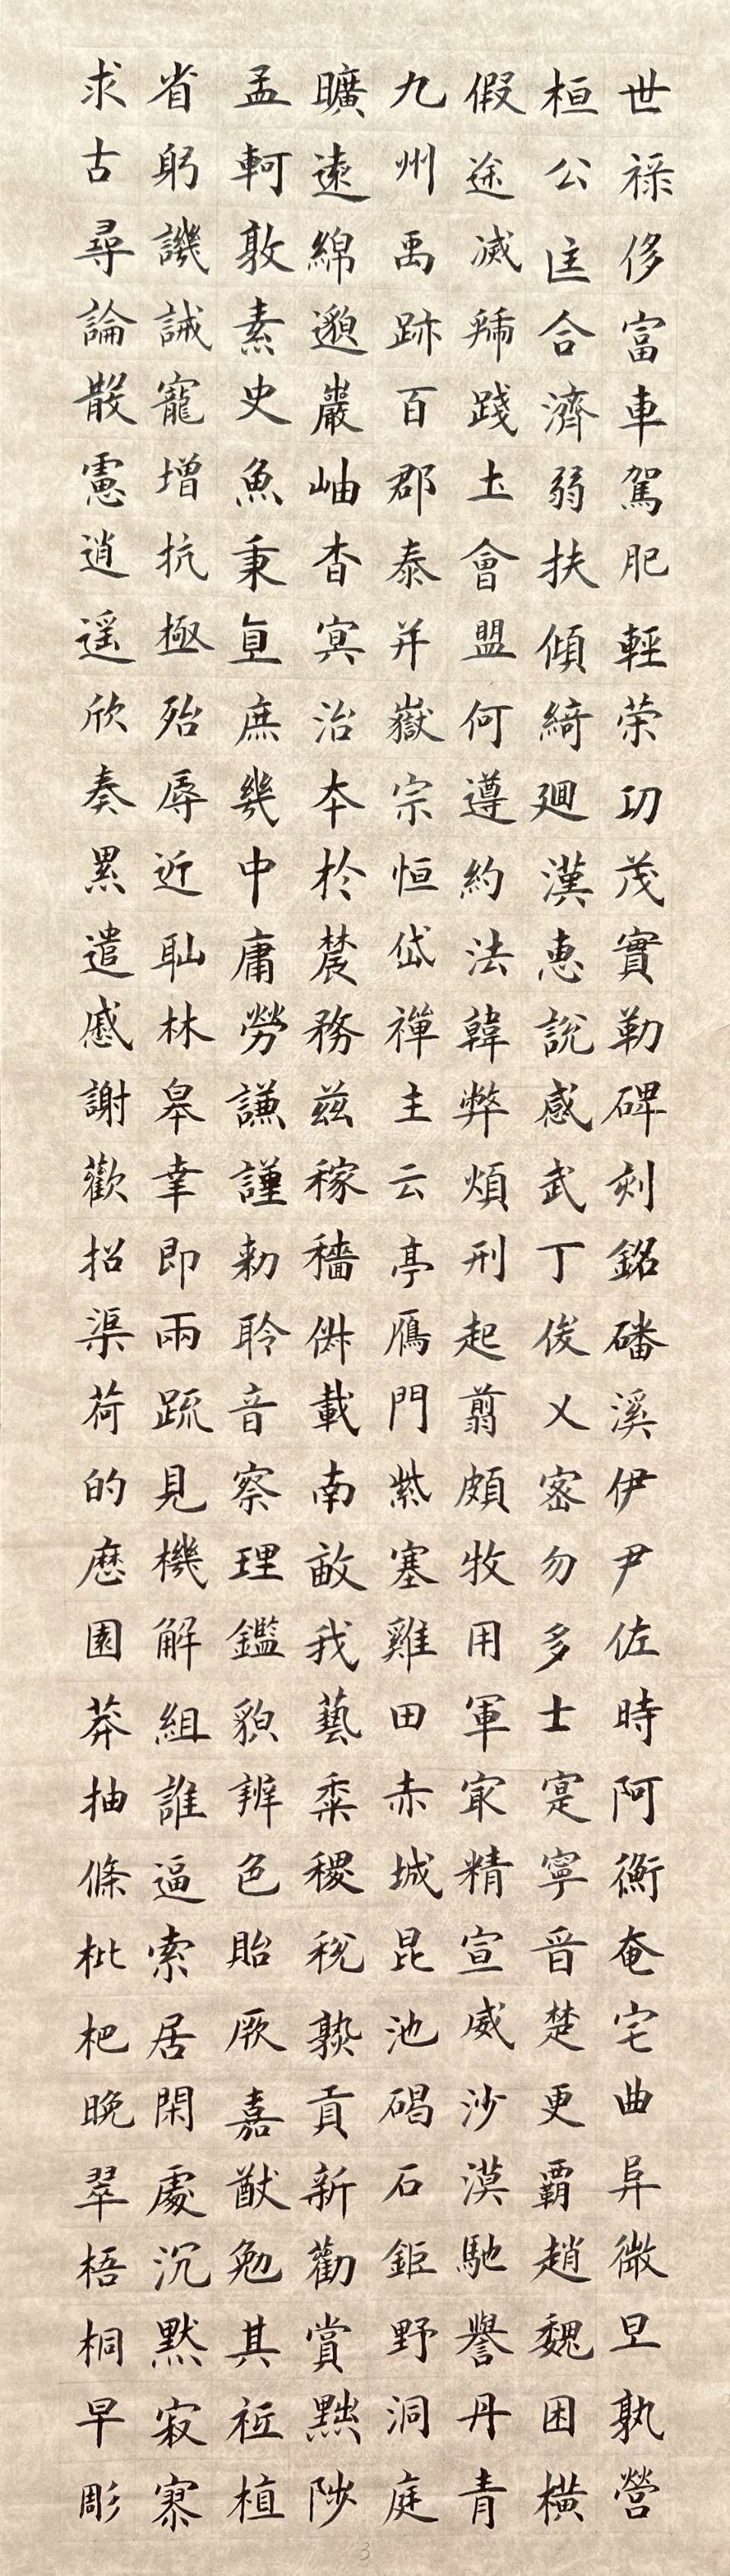 世禄侈富車駕肥輕荣功茂實勒碑刻銘磻溪伊尹佐時阿衡奄宅曲阜微旦孰營
桓公匡合濟弱扶傾綺廻漢惠說感武丁俊乂密勿多士寔寧晉楚更霸趙魏困横
假途滅虢踐土會盟何遵約法韓弊煩刑起翦頗牧用軍㝡精宣威沙漠馳譽丹青
九州禹跡百郡秦并嶽宗恒岱禪主云亭鴈門紫塞雞田赤城昆池碣石鉅野洞庭
曠遠綿邈巖岫杳冥治本於農務兹稼穡俶載南畝我藝黍稷税熟貢新勸賞黜陟
孟軻敦素史魚秉直庶幾中庸勞謙謹勑聆音察理鑑貌辨色貽厥嘉猷勉其祗植
省躬譏誡寵增抗極殆辱近恥林皋幸即兩疏見機解組誰逼索居閑處沉默寂寥
求古尋論散慮逍遥欣奏累遣慼謝歡招渠荷的歷園莽抽條枇杷晚翠梧桐早彫
3